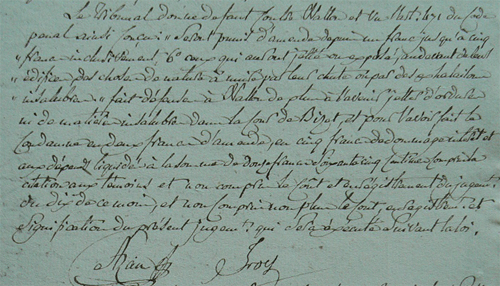 Le Tribunal donne defaut contre Vallon et Vu l'art. 471 du Code
penal ainsi conçu : « Seront punis d'amende depuis un franc jusqu'à cinq
« francs inclusivement, 6° ceux qui auront jetté ou exposé au devant de leurs
« édifices des choses de nature à nuire par leur chute ou par des exhalaisons
« insalubres » fait défense à Vallon de plus à l'avenir jetter d'ordures
ni de matieres insalubres dans la cour de et pour l'avoir fait le
condamne en deux francs d'amende, en cinq francs de dommages interets
aux dépens liquidés à la somme de douze francs soixante cinq centimes compris la
citation aux temoins et non compris le cout et enregistrement du jugement
du dix de ce mois, et non compris non plus le cout, enregistrement et
signification du présent jugement qui sera exécuté suivant la loi.
Troy